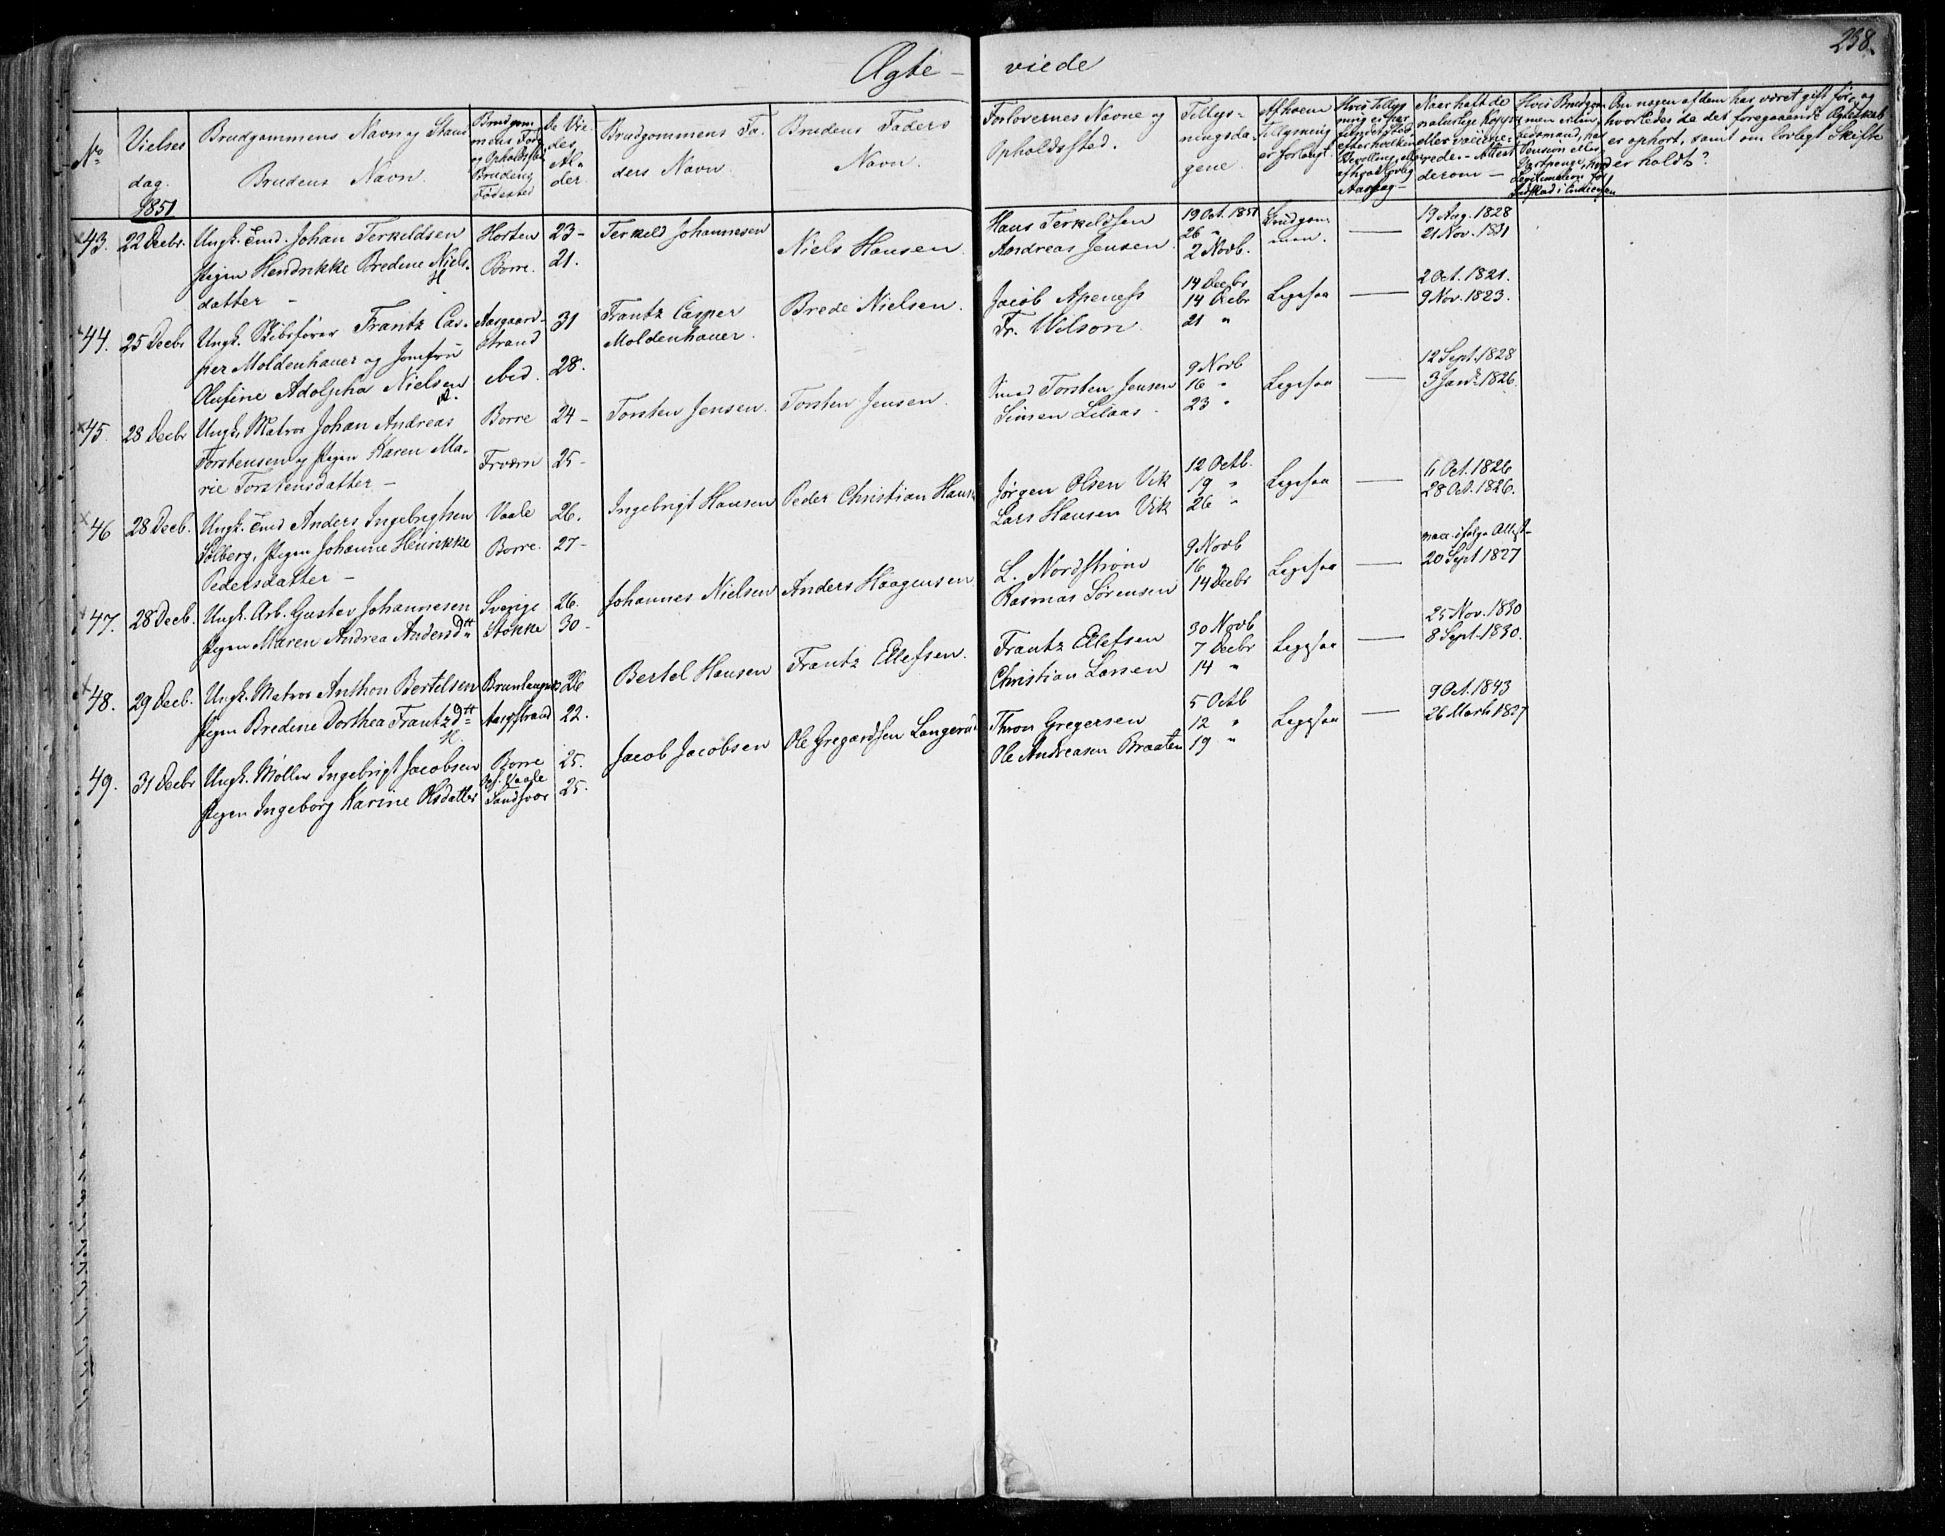 238.
Ægte-viede
No
Vielses
dag.
1851
Brudgommens Navn og Stand
Brudens Navn.
Brudgom
og Opholdssted
Brudens
Fødested
De Vie-
des
Al-
der.
Brudgommens Fa-
ders Navn.
Brudens Faders
Navn.
Forlovernes Navne og
Opholdssted.
Tillys-
ningsda-
gene.
Af hvem
Tillysning
er forlangt.
Hvis Tillys
ning er
Naar haft de
naturlige Kopper
eller vaccine-
rede. - Attest
derom -
Hvis Brudgom
men er
Pension eller
Om nogen af dem har været gift før, og
hvorledes da det foregaaende Ægteskab
er ophørt, samt om lovligt Skifte
er holdt?
43. 22 Decbr. Ungk. Johan Terkildsen Horten 23- Terkild Johannesen Niels Hansen. Hans Terkildsen 19 Oct. 1851 Brudgom 19 Aug. 1828
Andreas Jensen. 26 " men. — 21 Nov. 1831
Pigen Hendrikke Bredine Niels- Borre. 21. 2 Novb.
datter -
44. 25 Decbr Ungk. Skibsfører Frantz Cas- Aasgaard- 31 Frantz Casper Brede Nielsen. Jacob Apeness 14 Decbr Ligesaa — 2 Oct. 1821.
per Moldenhauer og Jomfru strand Moldenhauer. Fr. Wilson. 14 Decbr 9 Nov. 1823.
Olufine Adolpha Nielsen ibid. 28. 21 "
45. 28 Decbr Ungk. Matros Johan Andreas Borre 24- Torsten Jensen. Torsten Jensen. Torsten Jensen 9 Novb Ligesaa — 12 Sept. 1828
Torstensen og Pigen Karen Ma- 25- Simen 16 " 3 Jan. 1826.
rie Torstensdatter - 23 "
46 28 Decb. Ungk. Anders Ingebrigtsen Vaale 26. Ingebrigt Hansen Peder Christian Hans Jørgen Olsen Vik 12 Octb. Ligesaa — 6 Oct. 1826
Solberg, Pigen Johanne Henrikke Borre. 27- Lars Hansen Vik 19 " 28 Oct. 1826.
Pedersdatter - 26 "
47. 28 Decb. Ungk. Arb. Gustav Johannesen Sverige 26. Johannes Nielsen Anders Haagensen L. Nordstrøm 9 Novb Ligesaa — vacc. ifølge Attest-
Pigen Maren Andrea Andersdtt Stokke 30- Rasmus Sørensen 16 " 20 Sept 1827
14 Decbr
48. 29 Decb. Ungk. Matros Anthon Bertelsen Brunlaugnes 26 Bertel Hansen Frantz Ellefsen. Frantz Ellefsen 30 Novb Ligesaa — 25 Nov. 1830
Pigen Bredine Dorthea Frantzdtt Aasgstrand 22. Christian Larsen 7 Decbr 8 Sept. 1830.
14 "
49. 31 Decbr Ungk. Møller Ingebrigt Jacobsen Borre 25. Jacob Jacobsen Ole Gregardsen Langerud Thron Gregersen 5 Octb Ligesaa — 9 Oct. 1843
Vaale Ole Andreasen Braaten 12 " 26 Marts 1827
Pigen Ingeborg Karine Olsdatter Sandsvær 25. 19 "